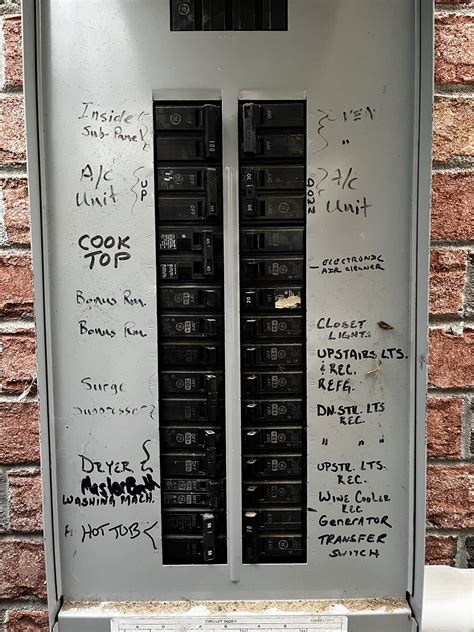 Inside
Sub-Panel
A/C
Unit
UP
COOK
TOP
Bonus Rm.
Bonus Rm.
Surge
Suppressor
DRYER
Master Bath
WASHING MACH.
HOT TUB
100
"
A/C
Unit
ELECTRONIC
AIR CLEANER
CLOSET
LIGHTS
UPSTAIRS LTS.
& REC.
REFG.
DN.STR. LTS
REC.
" "
UPSTR. LTS.
REC.
WINE COOLER
REC
GENERATOR
TRANSFER
SWITCH
CIRCUIT INDEX